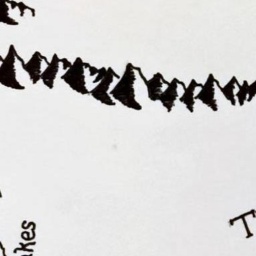 akes
T